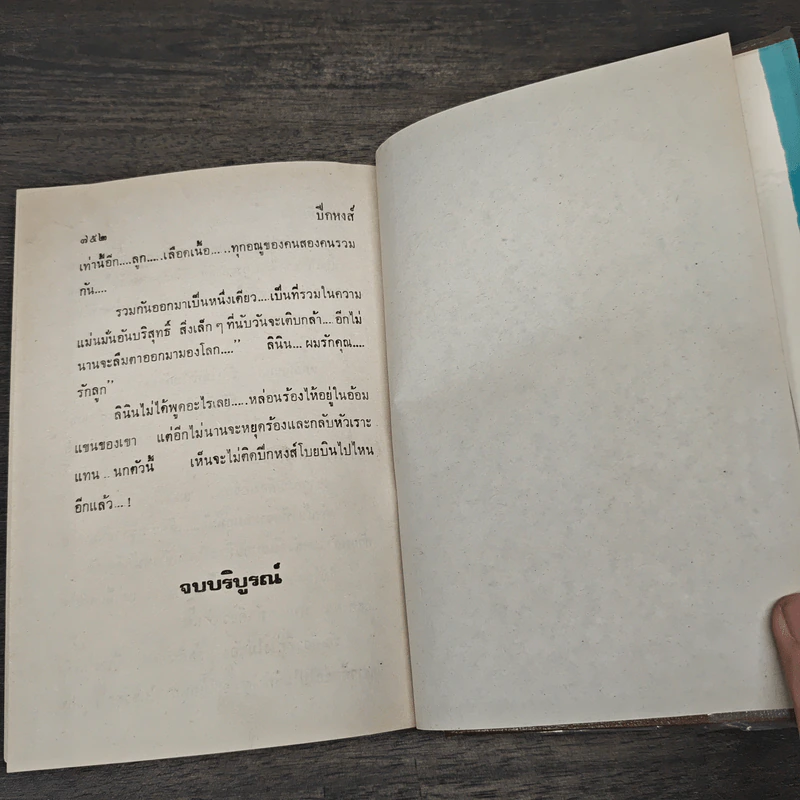 ๘๕๒
ปีกหงส์
เท่านี้อีก....ลูก.....เลือดเนื้อ......ทุกอณูของคนสองคนรวม
กัน....
รวมกันออกมาเป็นหนึ่งเดียว....เป็นที่รวมในความ
แม่นมั่นอันบริสุทธิ์ สิ่งเล็ก ๆ ที่นับวันจะเติบกล้า....อีกไม่
นานจะลืมตาออกมามองโลก....” ลินิน...ผมรักคุณ....
รักลูก”
ลินินไม่ได้พูดอะไรเลย.....หล่อนร้องไห้อยู่ในอ้อม
แขนของเขา แต่อีกไม่นานจะหยุดร้องและกลับหัวเราะ
แทน...นกตัวนี้ เห็นจะไม่ติดปีกหงส์โบยบินไปไหน
อีกแล้ว...!
จบบริบูรณ์